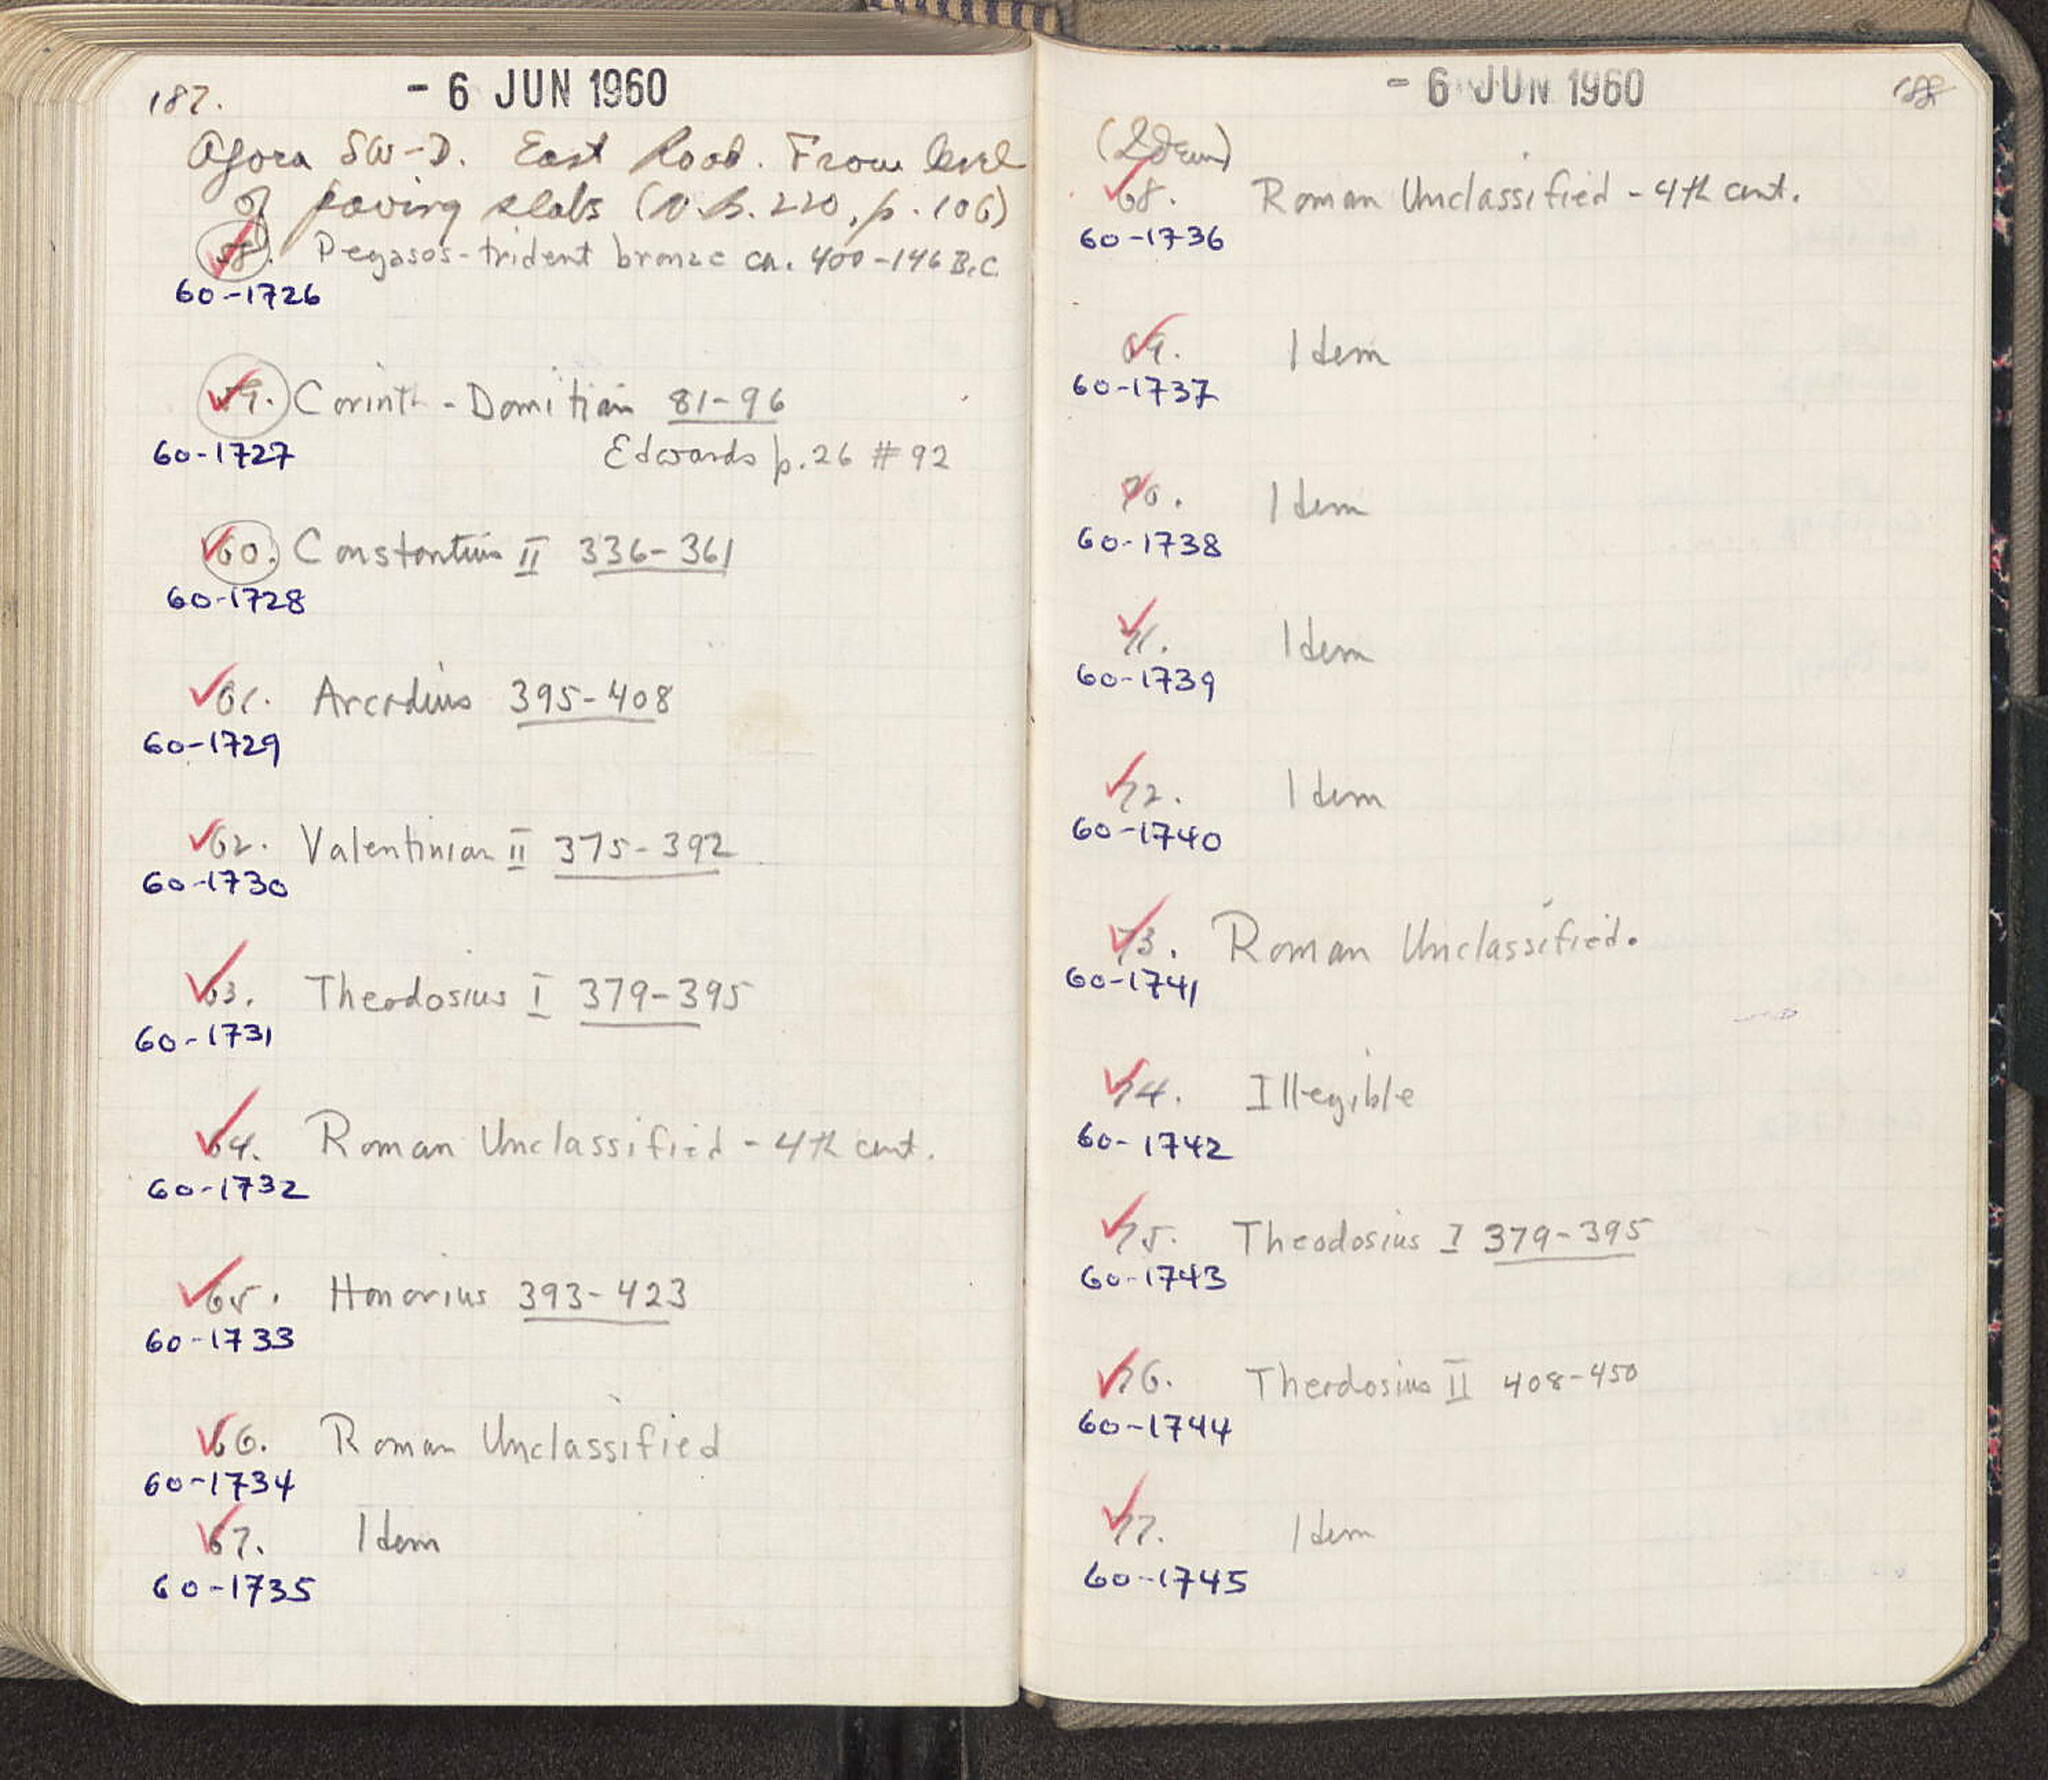 187.
- 6 JUN 1960
Agora SW-D. East Road. From level
of paving slabs (N.B. 220, p. 106)
58. Pegasos-trident bronze ca. 400-146 B.C.
60-1726
59. Corinth - Domitian 81-96
60-1727
Edwards p. 26 # 92
60. Constantius II 336-361
60-1728
61. Arcadius 395-408
60-1729
62. Valentinian II 375-392
60-1730
63. Theodosius I 379-395
60-1731
64. Roman Unclassified - 4th cent.
60-1732
65. Honorius 393-423
60-1733
66. Roman Unclassified
60-1734
67. Idem
60-1735
- 6 JUN 1960
188
(Idem)
68. Roman Unclassified - 4th cent.
60-1736
69. Idem
60-1737
70. Idem
60-1738
71. Idem
60-1739
72. Idem
60-1740
73. Roman Unclassified.
60-1741
74. Illegible
60-1742
75. Theodosius I 379-395
60-1743
76. Theodosius II 408-450
60-1744
77. Idem
60-1745